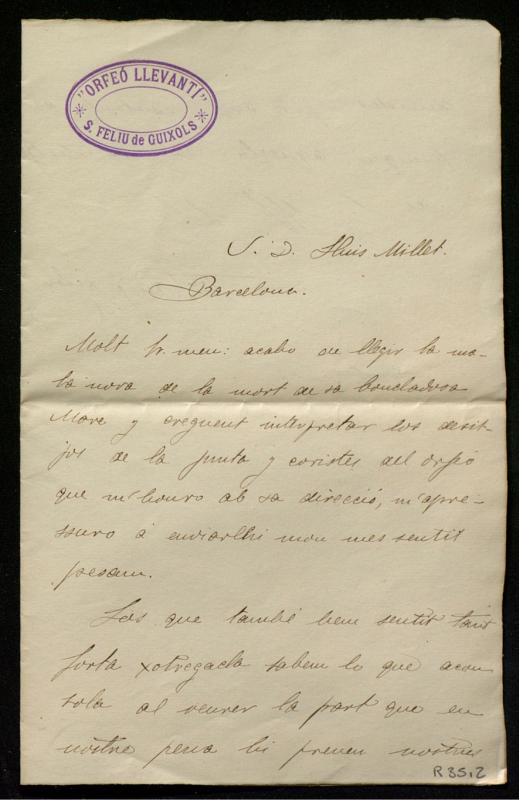 "ORFEÓ LLEVANTÍ"
S. FELIU de GUIXOLS
S. D. Lluis Millet.
Barcelona.
Molt Sr. meu: acabo de llegir la ma-
la nova de la mort de sa bondadosa
Mare y creguent interpretar los desit-
jos de la Junta y coristes del orfeó
que m'honro ab sa direcció, m'apre-
ssuro á enviarlhi mon mes sentit
pesam.
Los que també hem sentit tant
forta xotregada sabem lo que acon
sola al veurer la part que en
nostre pena hi prenen nostres
R 35,2